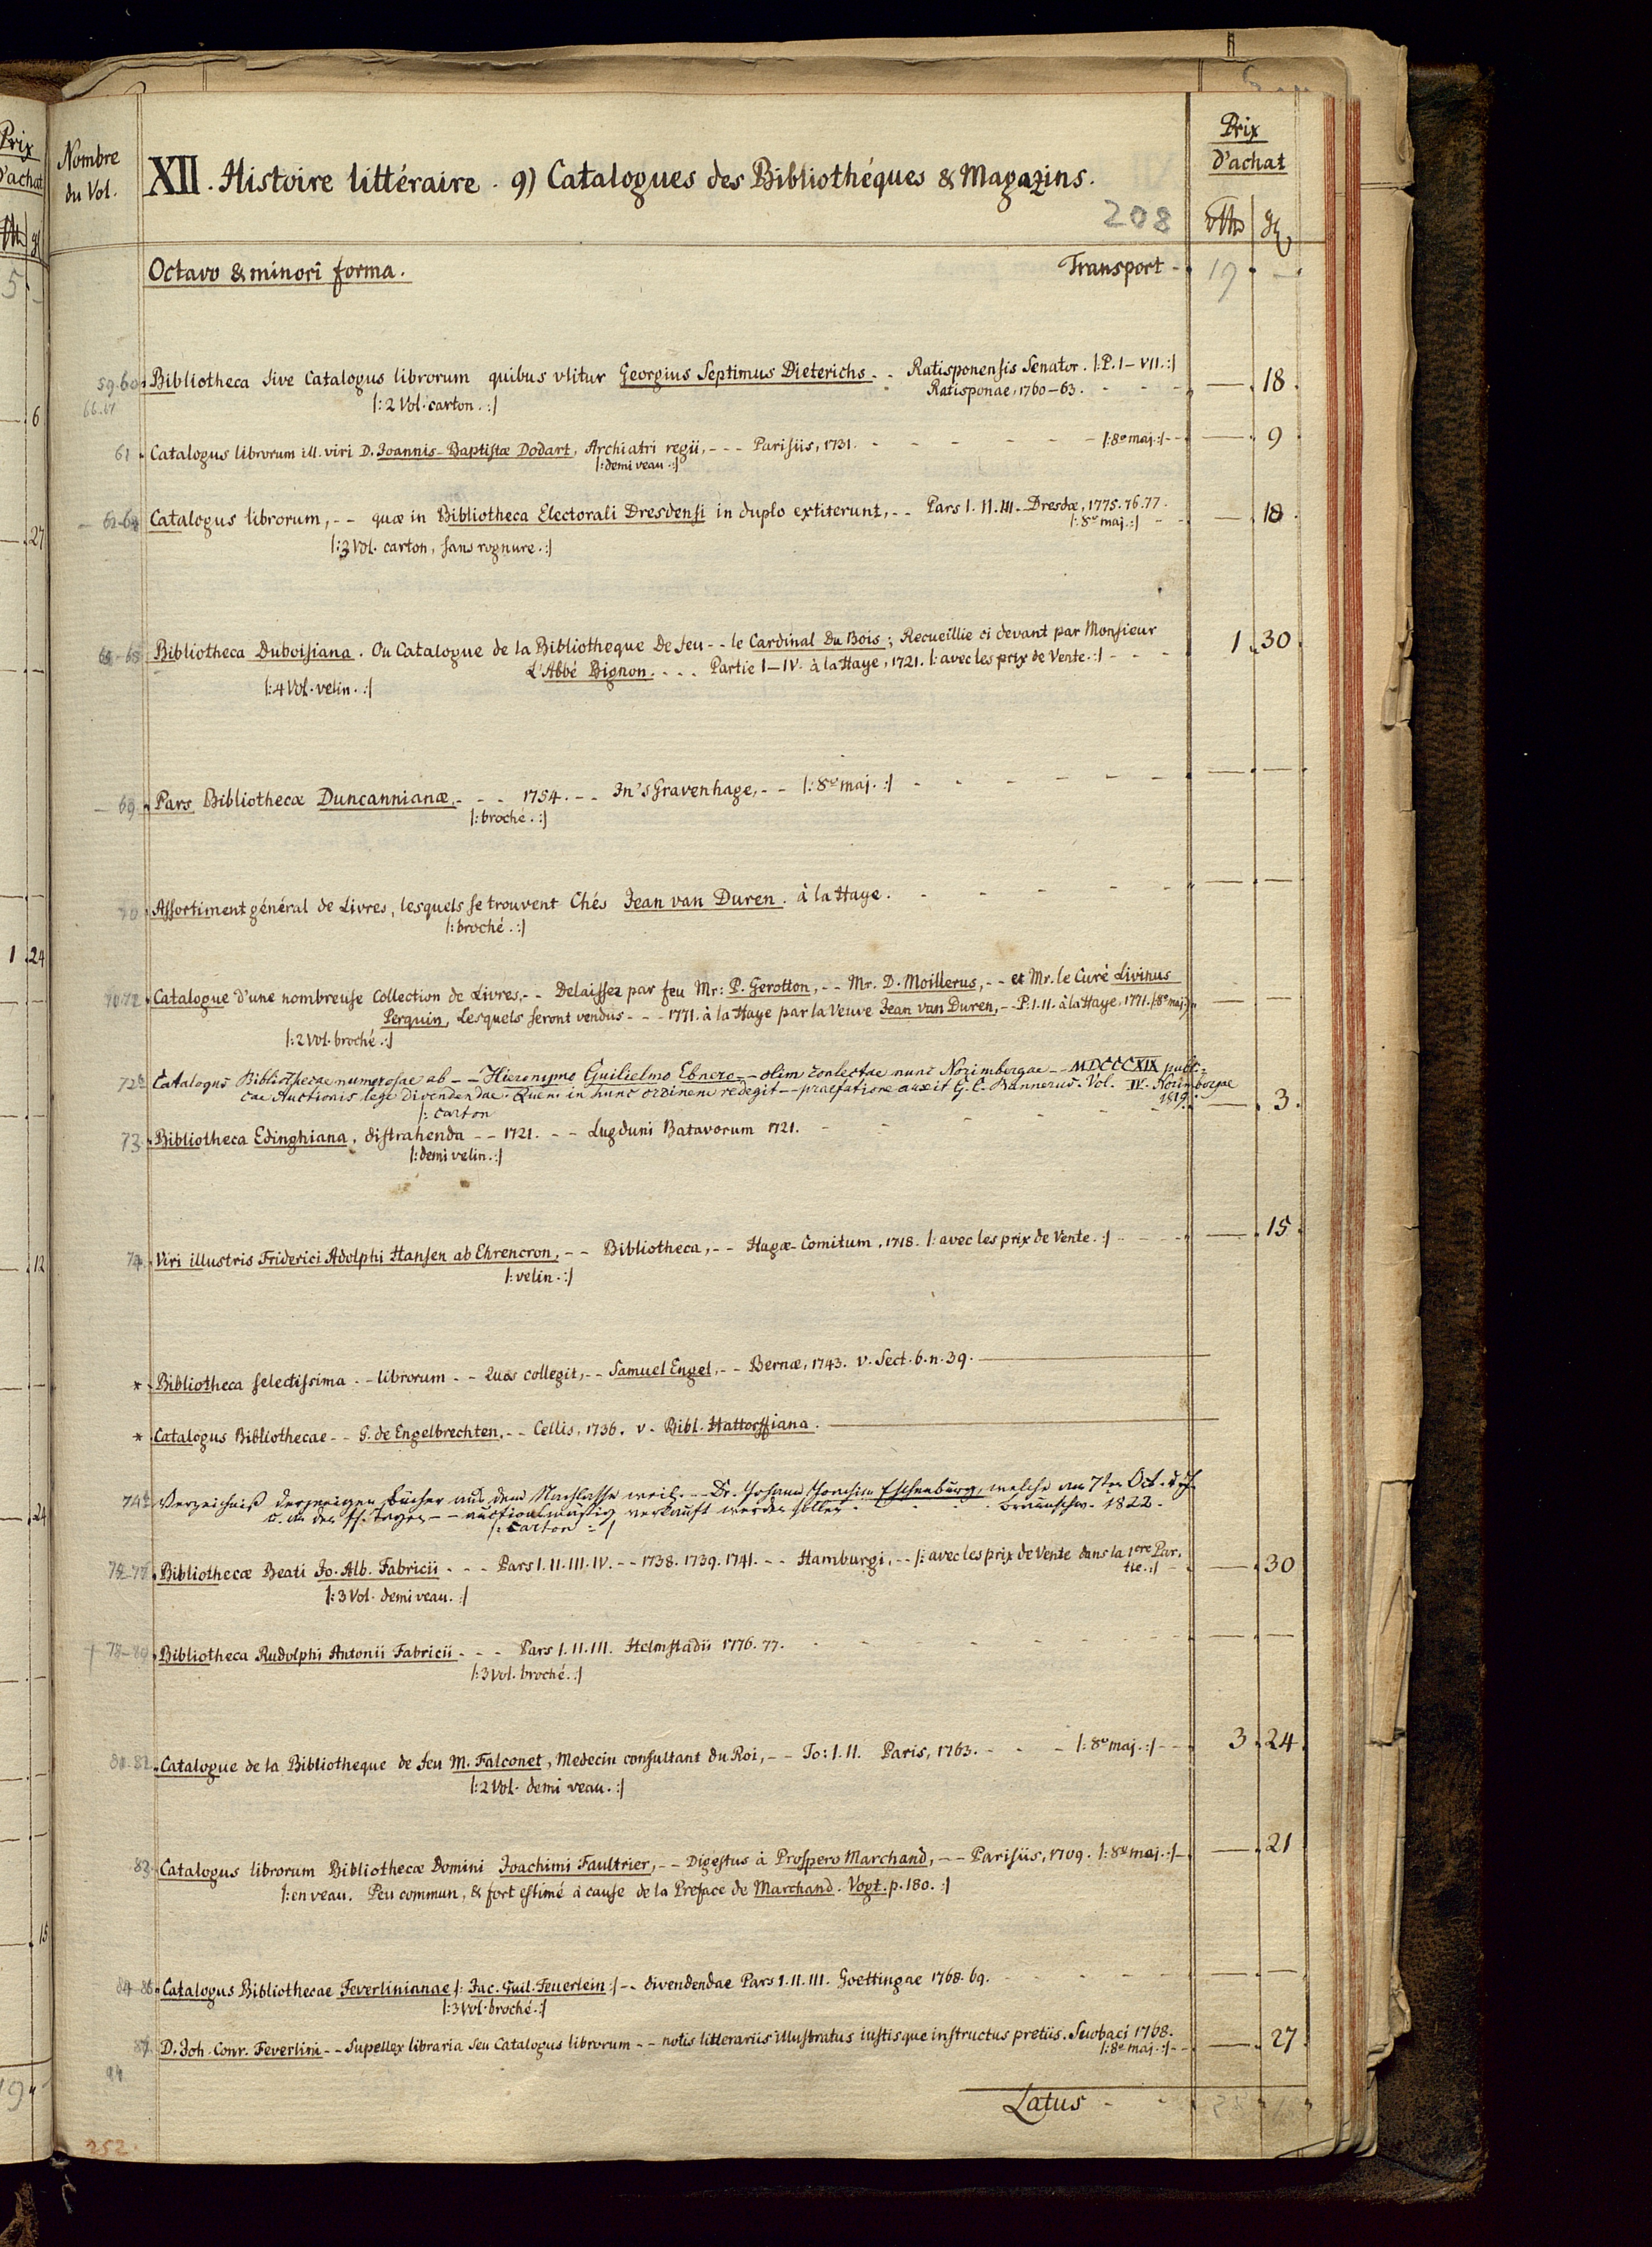 Prix
D'achat
Nombre
du Vol.
XII. Histoire littéraire. 9) Catalogues des Bibliothéques & Magazins.
208
Prix
D'achat
Octavo & minori forma.
Transport - 19. -.
59.60. Bibliotheca sive Catalogus librorum quibus vtitur Georgius Septimus Dieterichs. - - Ratisponensis Senator. |:P. I - VII.:| — 18.
66.67
Ratisponae, 1760-63. - - -
|: 2 Vol. carton. :|
61. Catalogus librorum ill. viri D. Joannis-Baptistæ Dodart, Archiatri regii, - - - Parisiis, 1731. - - - - - |:8º maj:| - - — 9.
|: demi veau. :|
62-64 Catalogus librorum, - - quæ in Bibliotheca Electorali Dresdensi in duplo extiterunt, - - Pars I. II. III. Dresdæ, 1775. 76. 77. — 18.
|: 8º maj. :| - -
|: 3 Vol. carton, sans rognure. :|
65-68 Bibliotheca Duboisiana. Ou Catalogue de la Bibliotheque De feu - - le Cardinal Du Bois; Recueillie ci devant par Monsieur 1. 30.
L'Abbé Bignon. . . . Partie I-IV. à la Haye, 1721. |: avec les prix de Vente. :| - - - -
|: 4 Vol. velin. :|
69. Pars Bibliothecæ Duncannianæ, - - - 1754. - - In's Gravenhage, - - |: 8º maj. :| - - - - - — —
|: broché. :|
70. Assortiment général de Livres, lesquels se trouvent Chés Jean van Duren. à la Haye. - - - - — —
|: broché. :|
71.72. Catalogue d'une nombreuse Collection de Livres, - - Delaissez par feu Mr: P. Gerotton, - - Mr. D. Moillerus, - - et Mr. le Curé Livinus
Perquin, Lesquels seront vendus - - - 1771. à la Haye par la Veuve Jean van Duren, - - P. I. II. à la Haye, 1771. |:8º maj:| — —
|: 2 Vol. broché. :|
72b Catalogus Bibliothecae numerosae ab - - Hieronymo Guilielmo Ebnero - - olim conlectae nunc Norimbergae - - MDCCCXIX publi-
cae Auctionis lege divendendae. Quem in hunc ordinem redegit - - praefatione auxit G. C. Rannerus. Vol. IV. Norimbergae
1819. — 3.
|: carton
73. Bibliotheca Edinghiana, distrahenda - - 1721. - - Lugduni Batavorum 1721. - - - - -
|: demi velin. :|
74. Viri illustris Friderici Adolphi Hansen ab Ehrencron, - - Bibliotheca, - - Hagæ-Comitum, 1718. |: avec les prix de Vente. :| - - - - — 15.
|: velin. :|
* Bibliotheca selectissima. - librorum - - Quos collegit, - - Samuel Engel, - - Bernæ, 1743. v. Sect. 6. n. 39.
* Catalogus Bibliothecae - - G. de Engelbrechten. - - Cellis, 1736. v. Bibl. Hattorffiana.
74b Verzeichniß derjenigen Bücher aus dem Nachlasse weil. - - Dr. Johann Joachim Eschenburg, welche am 7ten Oct. d. J.
u. an den f. Tagen - - auctionsmäßig verkauft werden sollen. - - - Braunschw. 1822.
|: carton :|
75-77. Bibliothecæ Beati Jo. Alb. Fabricii - - - Pars I. II. III. IV. - - 1738. 1739. 1741. - - Hamburgi, - - |: avec les prix de Vente dans la 1ere Par. — 30
tie. :| -
|: 3 Vol. demi veau. :|
78-80. Bibliotheca Rudolphi Antonii Fabricii - - - Pars I. II. III. Helmstadii 1776. 77. - - - - - — —
|: 3 Vol. broché. :|
81.82. Catalogue de la Bibliotheque de feu M. Falconet, Medecin consultant du Roi, - - To: I. II. Paris, 1763. - - - |: 8º maj. :| - - 3. 24.
|: 2 Vol. demi veau. :|
83. Catalogus librorum Bibliothecæ Domini Joachimi Faultrier, - - Digestus à Prospero Marchand, - - Parisiis, 1709. |: 8º maj. :| - — 21
|: en veau. Peu commun, & fort estimé à cause de la Preface de Marchand. Vogt. p. 180. :|
84-86. Catalogus Bibliothecae Feverlinianae |: Jac. Guil. Feuerlein :| - - divendendae Pars I. II. III. Goettingae 1768. 69. - - - - — —
|: 3 Vol. broché. :|
87. D. Joh. Conr. Feverlini - - Supellex libraria seu Catalogus librorum - - notis litterariis illustratus iustisque instructus pretiis. Suobaci 1768. — 27.
|: 8º maj. :| - -
94
Latus - -
252.